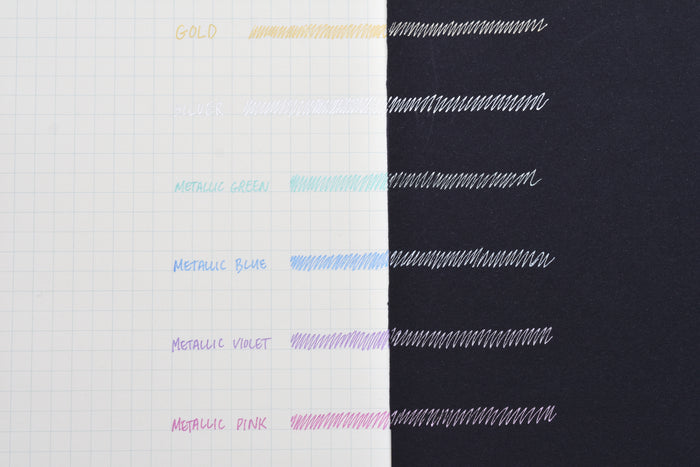 GOLD
SILVER
METALLIC GREEN
METALLIC BLUE
METALLIC VIOLET
METALLIC PINK